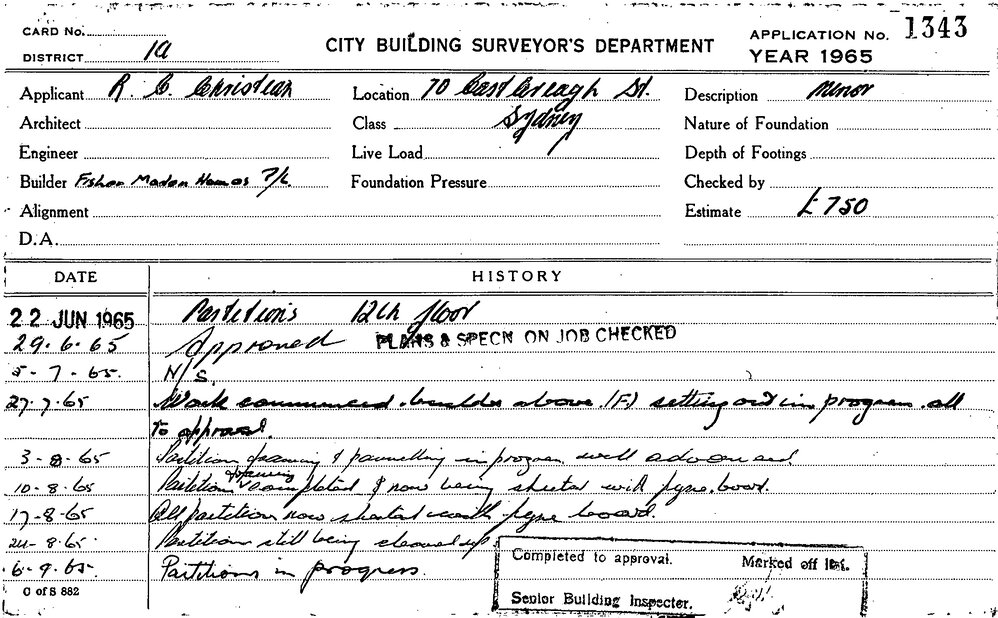 CARD No.
DISTRICT 1a
CITY BUILDING SURVEYOR'S DEPARTMENT
APPLICATION No. 1343
YEAR 1965
Applicant R. C. Christean
Location 70 Castlereagh St.
Sydney
Description Minor
Architect
Class
Nature of Foundation
Engineer
Live Load
Depth of Footings
Builder Fisher Maden Homes P/L
Foundation Pressure
Checked by
Alignment
Estimate £750
D.A.
DATE HISTORY
22 JUN 1965 Partitions 12th floor
29.6.65 Approved PLANS & SPECN ON JOB CHECKED
5-7-65. N/S.
27.7.65 Work commenced. builder above. (F) setting out in program. all
to approval.
3-8-65 Partition framing & pannelling in program well advanced.
framing
10-8-65 Partition completed & now being sheeted with gyp. board.
17-8-65 All partition now sheeted with board.
24-8-65 Partition still being cleaned up.
6.9.65. Partitions in progress.
Completed to approval. Marked off list.
Senior Building Inspecter.
C of S 882